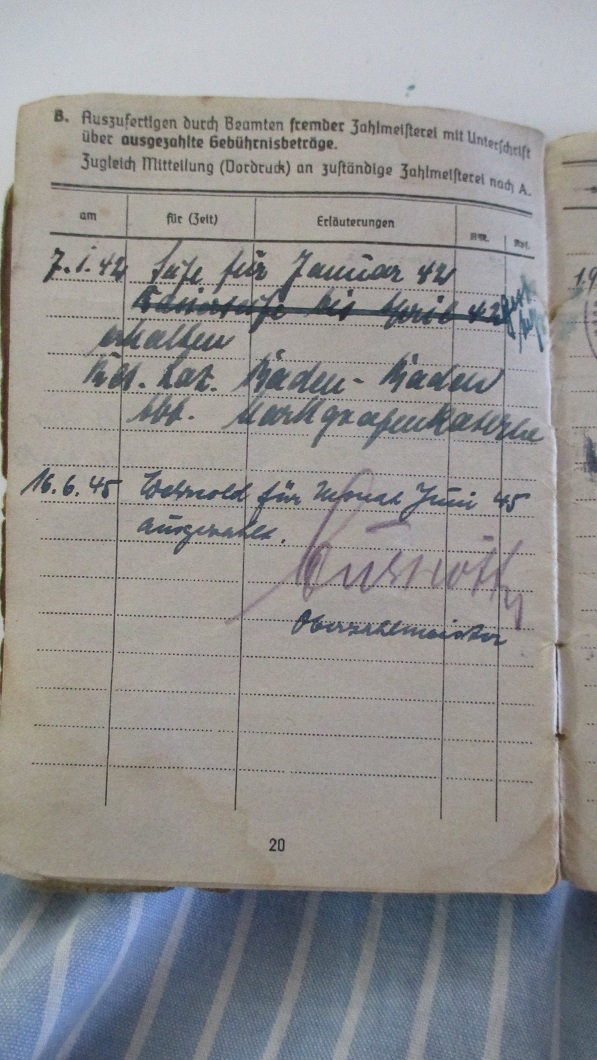 B. Auszufertigen durch Beamten fremder Zahlmeisterei mit Unterschrift
über ausgezahlte Gebührnisbeträge.
Zugleich Mitteilung (Vordruck) an zuständige Zahlmeisterei nach A.
am für (Zeit) Erläuterungen RM. Rpf.
7.1.42 Seife für Januar 42
Rasierseife bis April 42
erhalten
Res. Laz. Baden-Baden
Abt. Markgrafenkaserne
16.6.45 Wehrsold für Monat Juni 45
ausgezahlt.
Oberzahlmeister
20
19